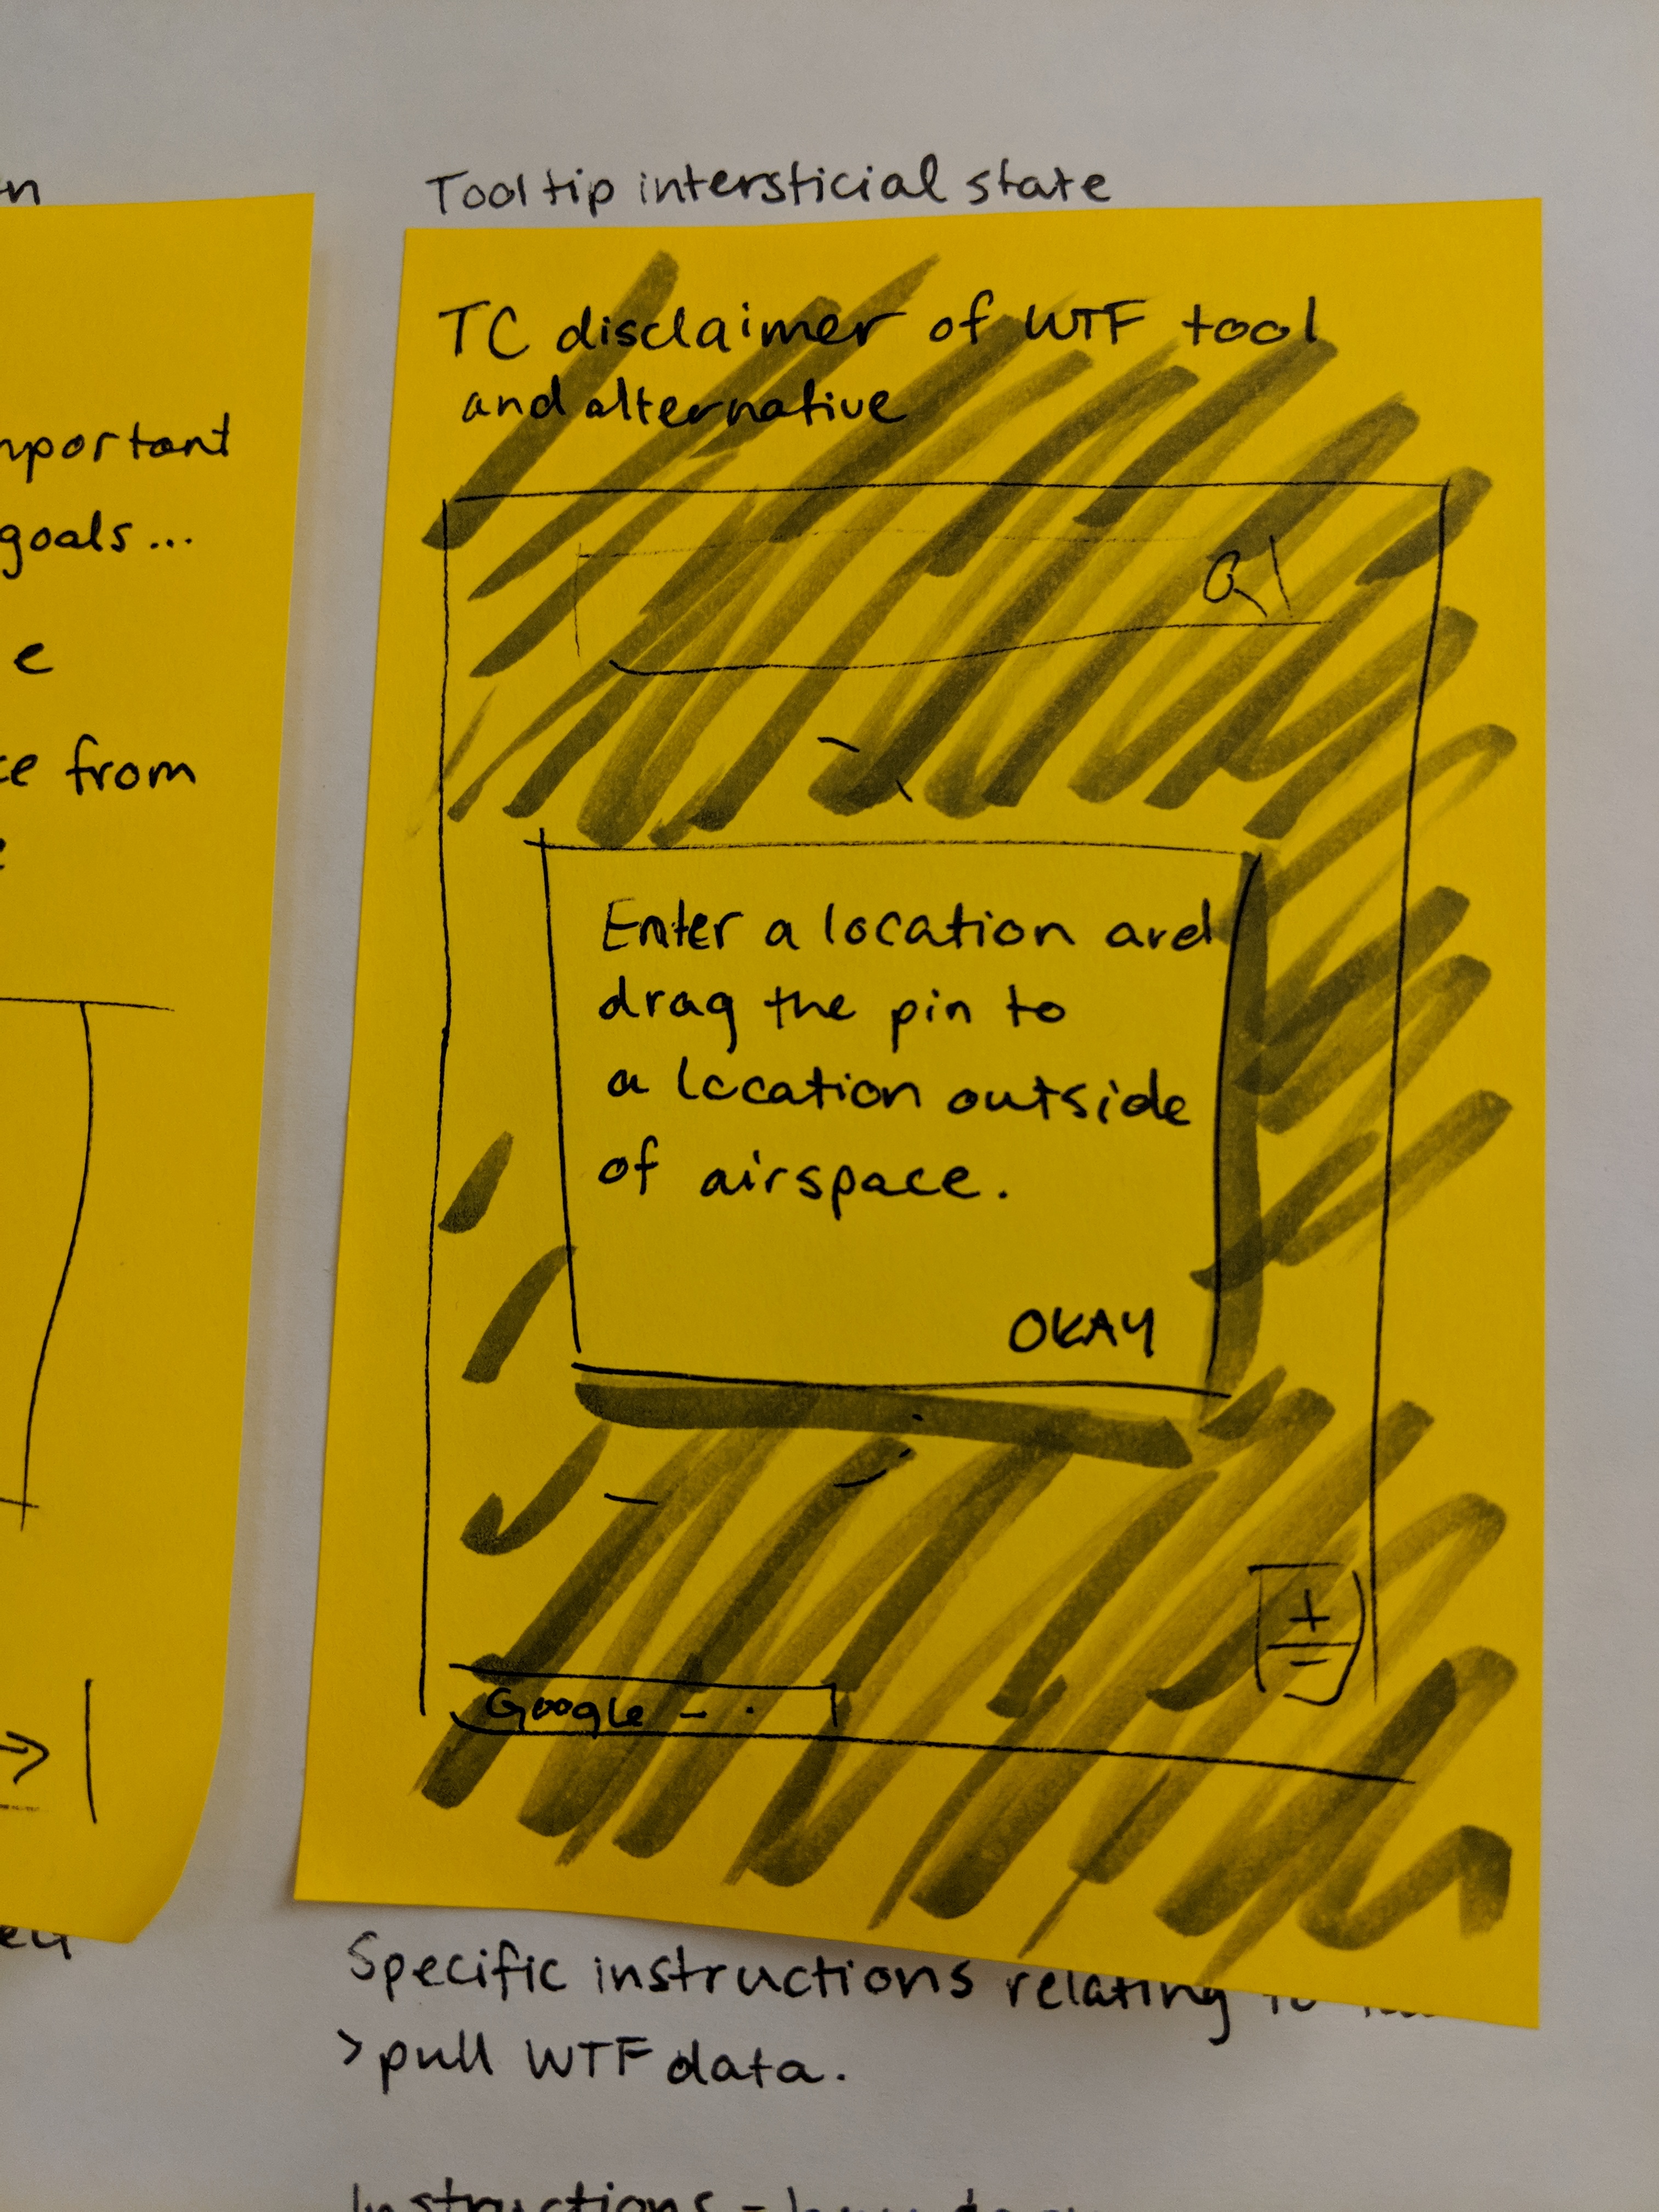 Tooltip intersticial state
mportant
goals...
e
from
TC disclaimer of WTF tool
and alternative
Enter a location and
drag the pin to
a location outside
of airspace.
OKAY
+
Google
Specific instructions relating to
>pull WTF data.
Instructions -